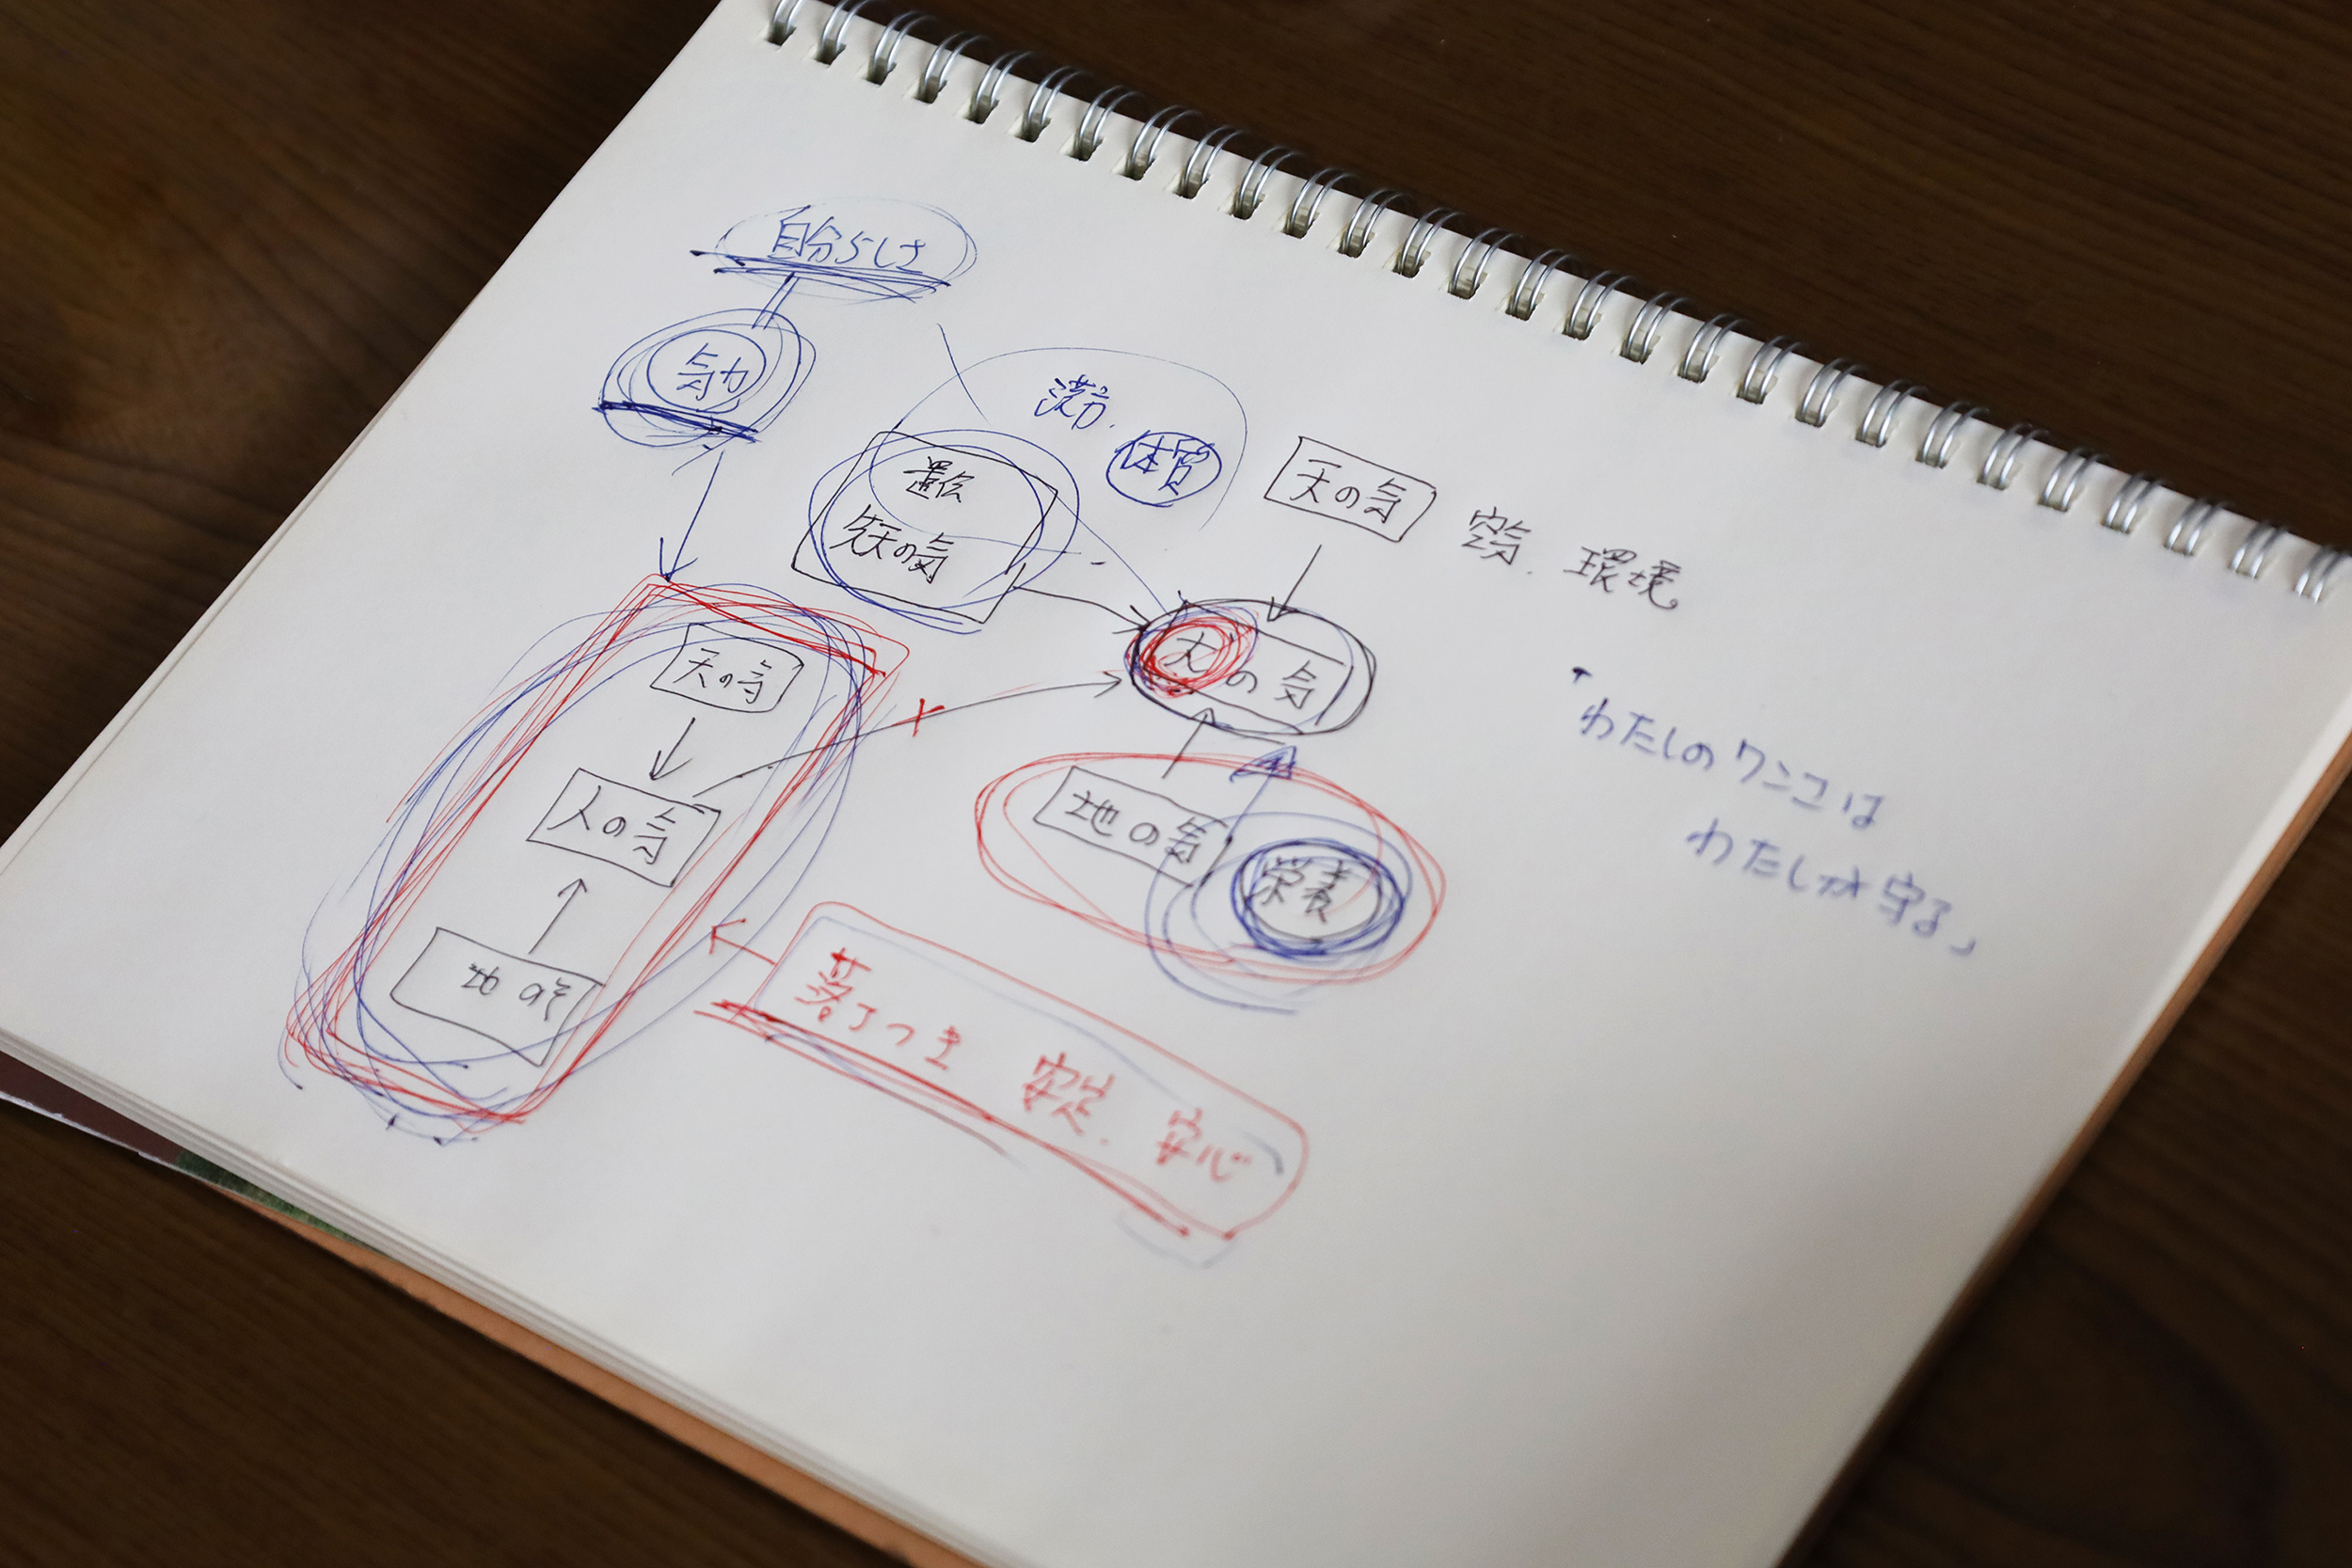 自分らしさ
気力
漢方.
体質
遺伝
先天の気
天の気
空気.環境
犬の気
天の気
人の気
地の気
地の気
栄養
「わたしのワンコは
わたしが守る」
落ちつき 安定.安心